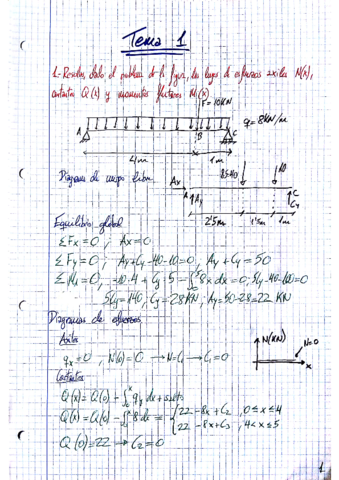 Tema 1
1.- Resolver, dado el problema de la figura, las leyes de esfuerzos axiles N(x),
cortantes Q(x) y momentos flectores M(x)
F=10KN
q=8KN/m
A B C
4m 1m
Diagrama de cuerpo libre
Ax 8·5=40 10
A Ay C
Cy
2'5m 1'5m 1m
Equilibrio global
ΣFx=0 ; Ax=0
ΣFy=0 ; Ay+Cy-40-10=0, Ay+Cy=50
ΣMA=0, -10·4+Cy·5-∫₀⁵8x dx=0; 5Cy-40-100=0
5Cy=140, Cy=28KN; Ay=50-28=22 KN
Diagramas de esfuerzos
Axiles
qx=0, N(0)=0 → N=C₁ → C₁=0
N(KN)
N=0
x
Cortantes
Q(x)=Q(0)-∫₀ˣ qy dx + salto
Q(x)=Q(0)-∫₀ˣ 8 dx = { 22-8x+C₂, 0≤x≤4
22-8x+C₃, 4<x≤5
Q(0)=22 → C₂=0
1